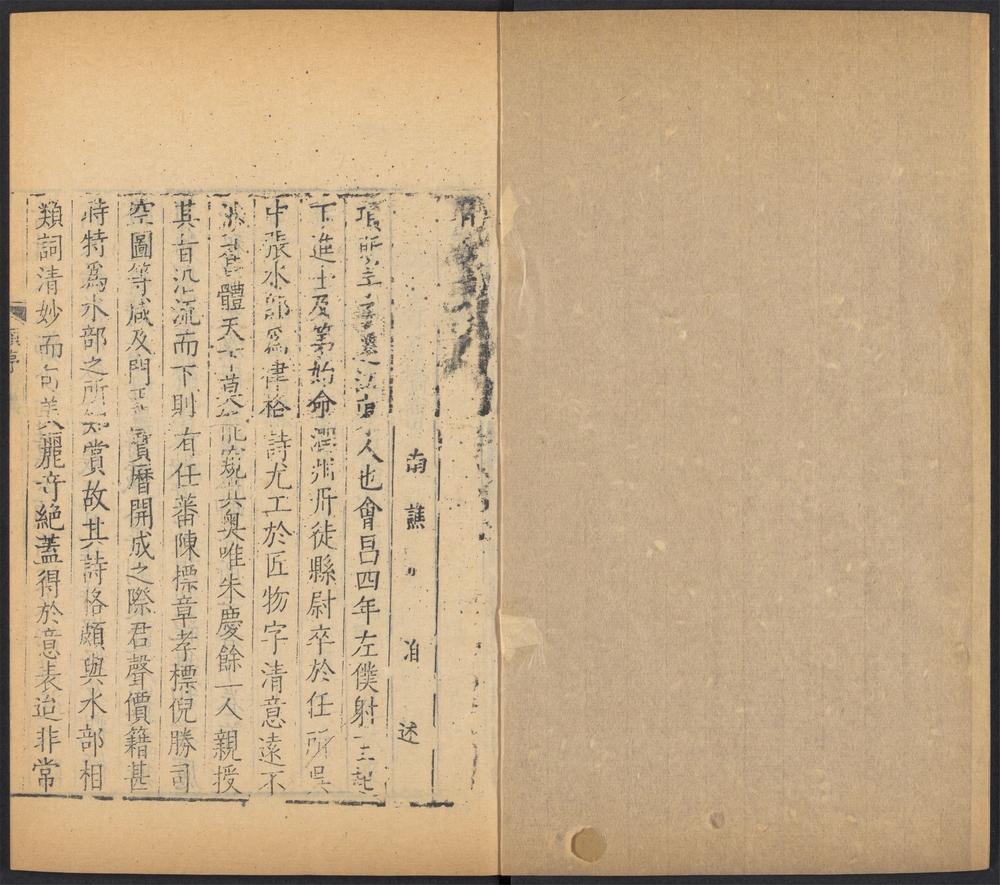 南譙 洎 述
項斯字子遷江東人也會昌四年左僕射王起
下進士及第始命潤州丹徒縣尉卒於任所吳
中張水部爲律格詩尤工於匠物字清意遠不
舊體天下莫能窺其奧唯朱慶餘一人親授
其旨沿流而下則有任蕃陳標章孝標倪勝司
空圖等咸及門 寶曆開成之際君聲價籍甚
時特爲水部之所知賞故其詩格頗與水部相
類詞清妙而句美麗竒絶蓋得於意表迨非常